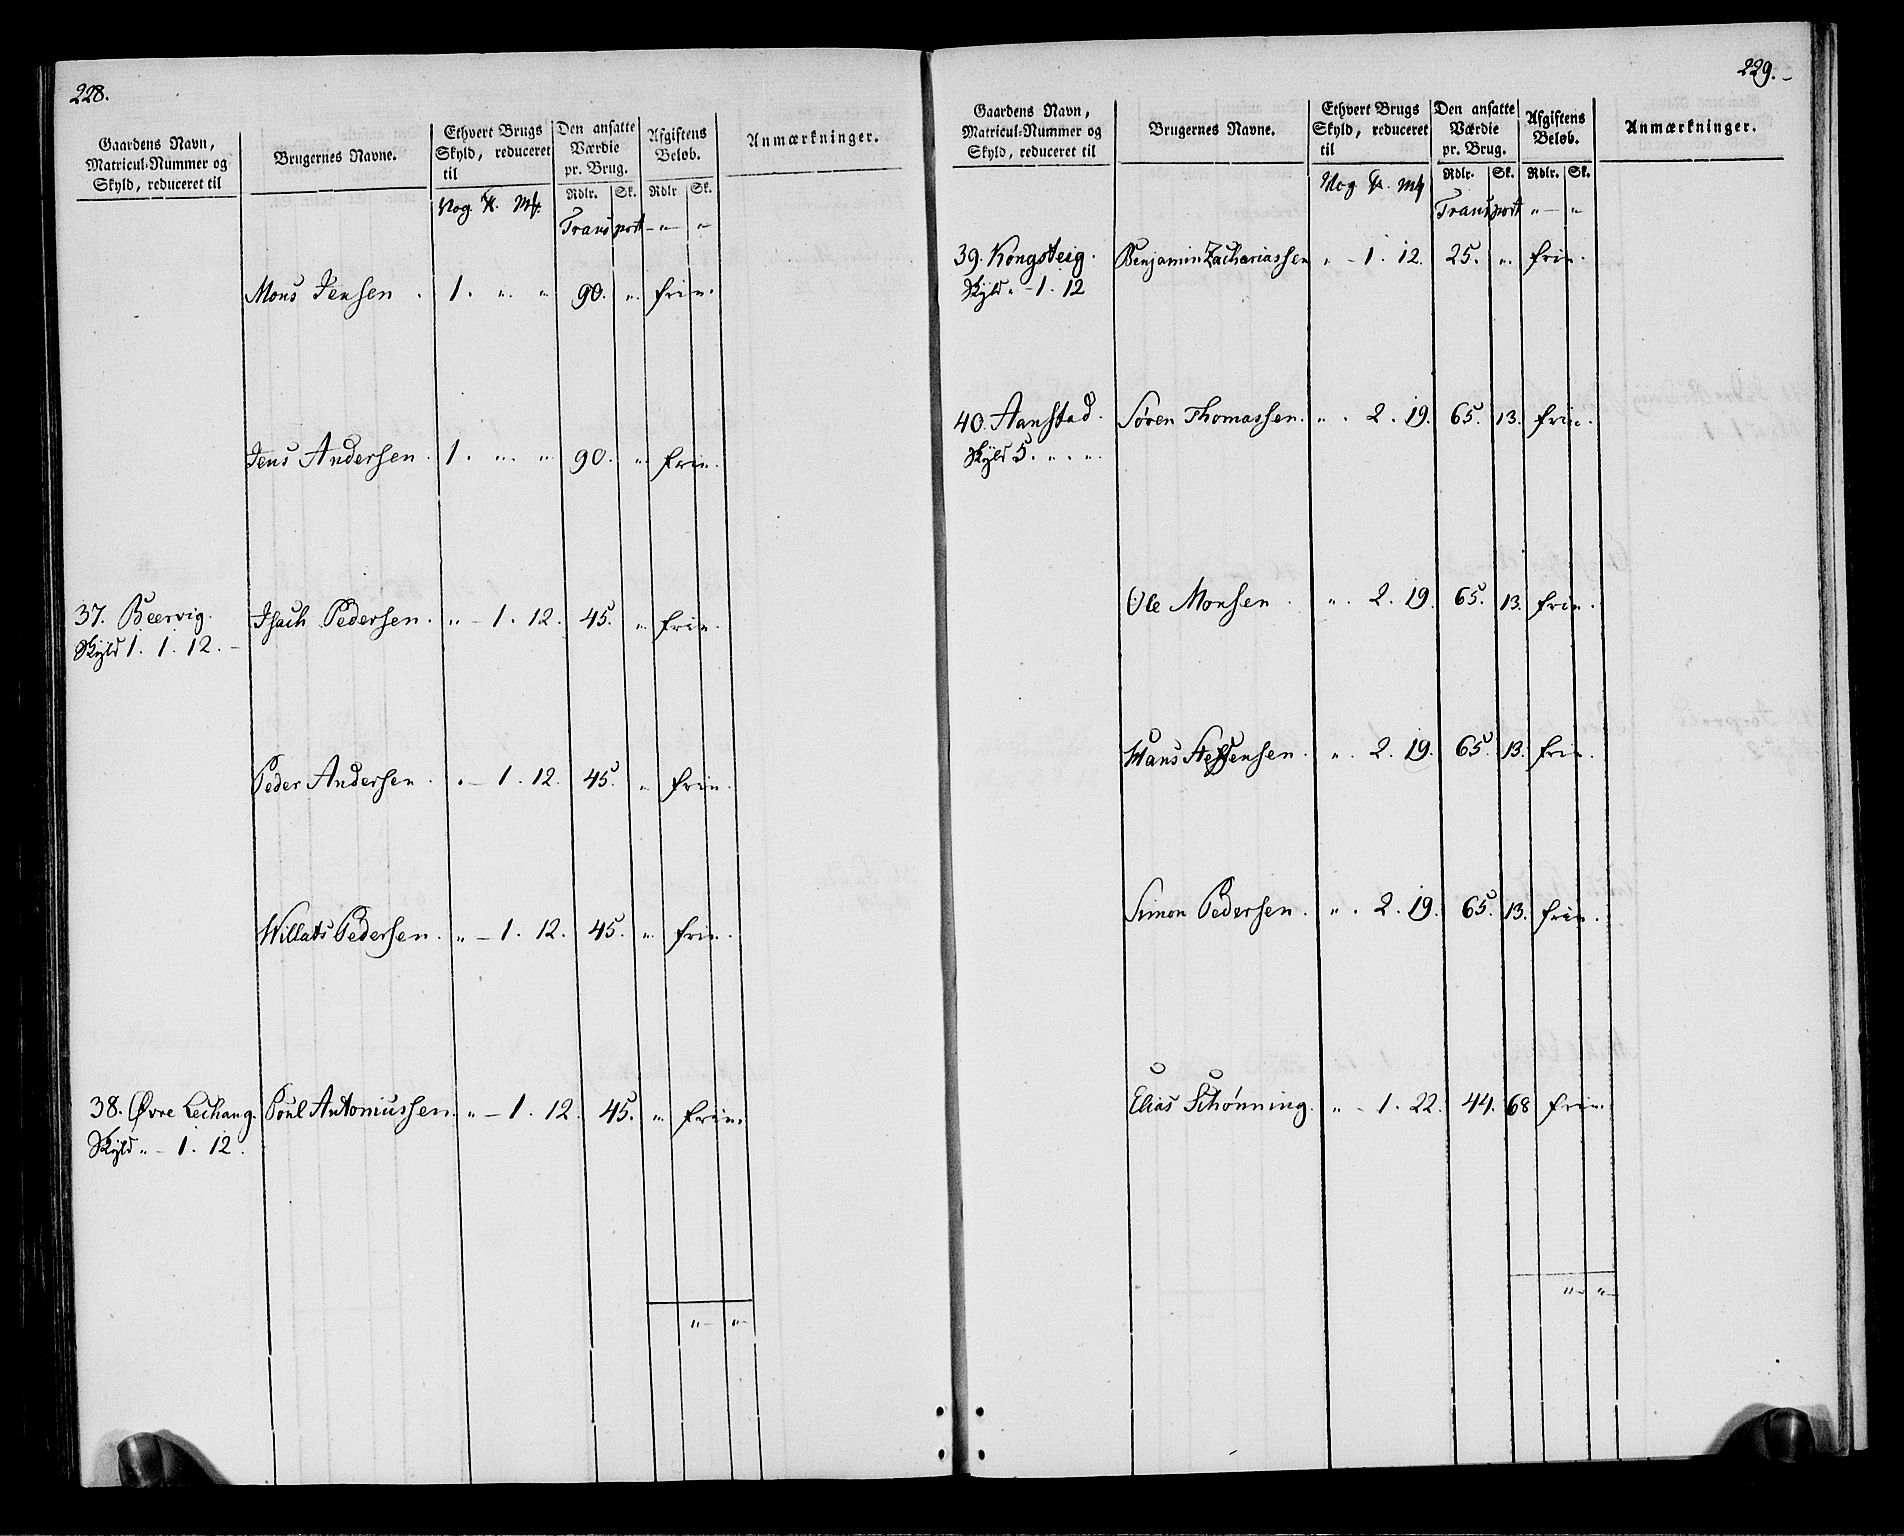 228.
Gaardens Navn, Matricul-Nummer og Skyld, reduceret til
Brugernes Navne.
Ethvert Brugs Skyld, reduceret til
Den ansatte Værdie pr. Brug.
Afgiftens Beløb.
Anmærkninger.
Rdlr. Sk. Rdlr Sk.
Vog. ℔. Mk.
Transport - „ - „
Mons Jensen . 1. „ „ 90. „ frie.
Jens Andersen . 1. „ „ 90. „ frie.
37. Beervig. Isach Pedersen . „ - 1. 12. 45. „ frie.
Skyld 1. 1. 12. -
Peder Andersen . „ - 1. 12. 45. „ frie.
Willats Pedersen . „ - 1. 12. 45. „ frie.
38. Øvre Lechang. Poul Antoniussen . „ - 1. 12. 45. „ frie.
Skyld „ - 1. 12.
„ - „ -
229. -
Gaardens Navn, Matricul-Nummer og Skyld, reduceret til
Brugernes Navne.
Ethvert Brugs Skyld, reduceret til
Den ansatte Værdie pr. Brug.
Afgiftens Beløb.
Anmærkninger.
Rdlr. Sk. Rdlr. Sk.
Vog. ℔. Mk
Transport „ - „
39. Kongsteig. Benjamin Zachariassen „ - 1. 12. 25. „ frie.
Skyld „ - 1. 12
40. Aanstad. Søren Thomassen. „ . 2. 19. 65. 13. frie.
Skyld 5. „ . „ .
Ole Monsen . „ . 2. 19. 65. 13. frie.
Hans Steffensen . „ . 2. 19. 65. 13. frie.
Simon Pedersen . „ . 2. 19. 65. 13. frie.
Elias Schønning. „ - 1. 22. 44. 68 frie.
„ - „ -